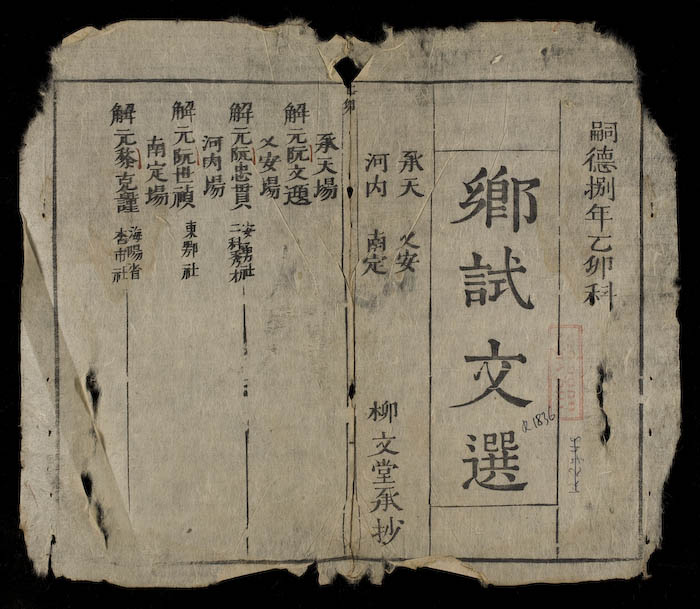 嗣德捌年乙卯科
鄉試文選
R.1836
承天 乂安
河内 南定
柳文堂承抄
乙卯
承天場
解元阮文
乂安場
解元阮忠貫
安勇社
二科秀材
河内場
解元阮世禎 東鄂社
南定場
解元黎克謹
海陽省
杏市社